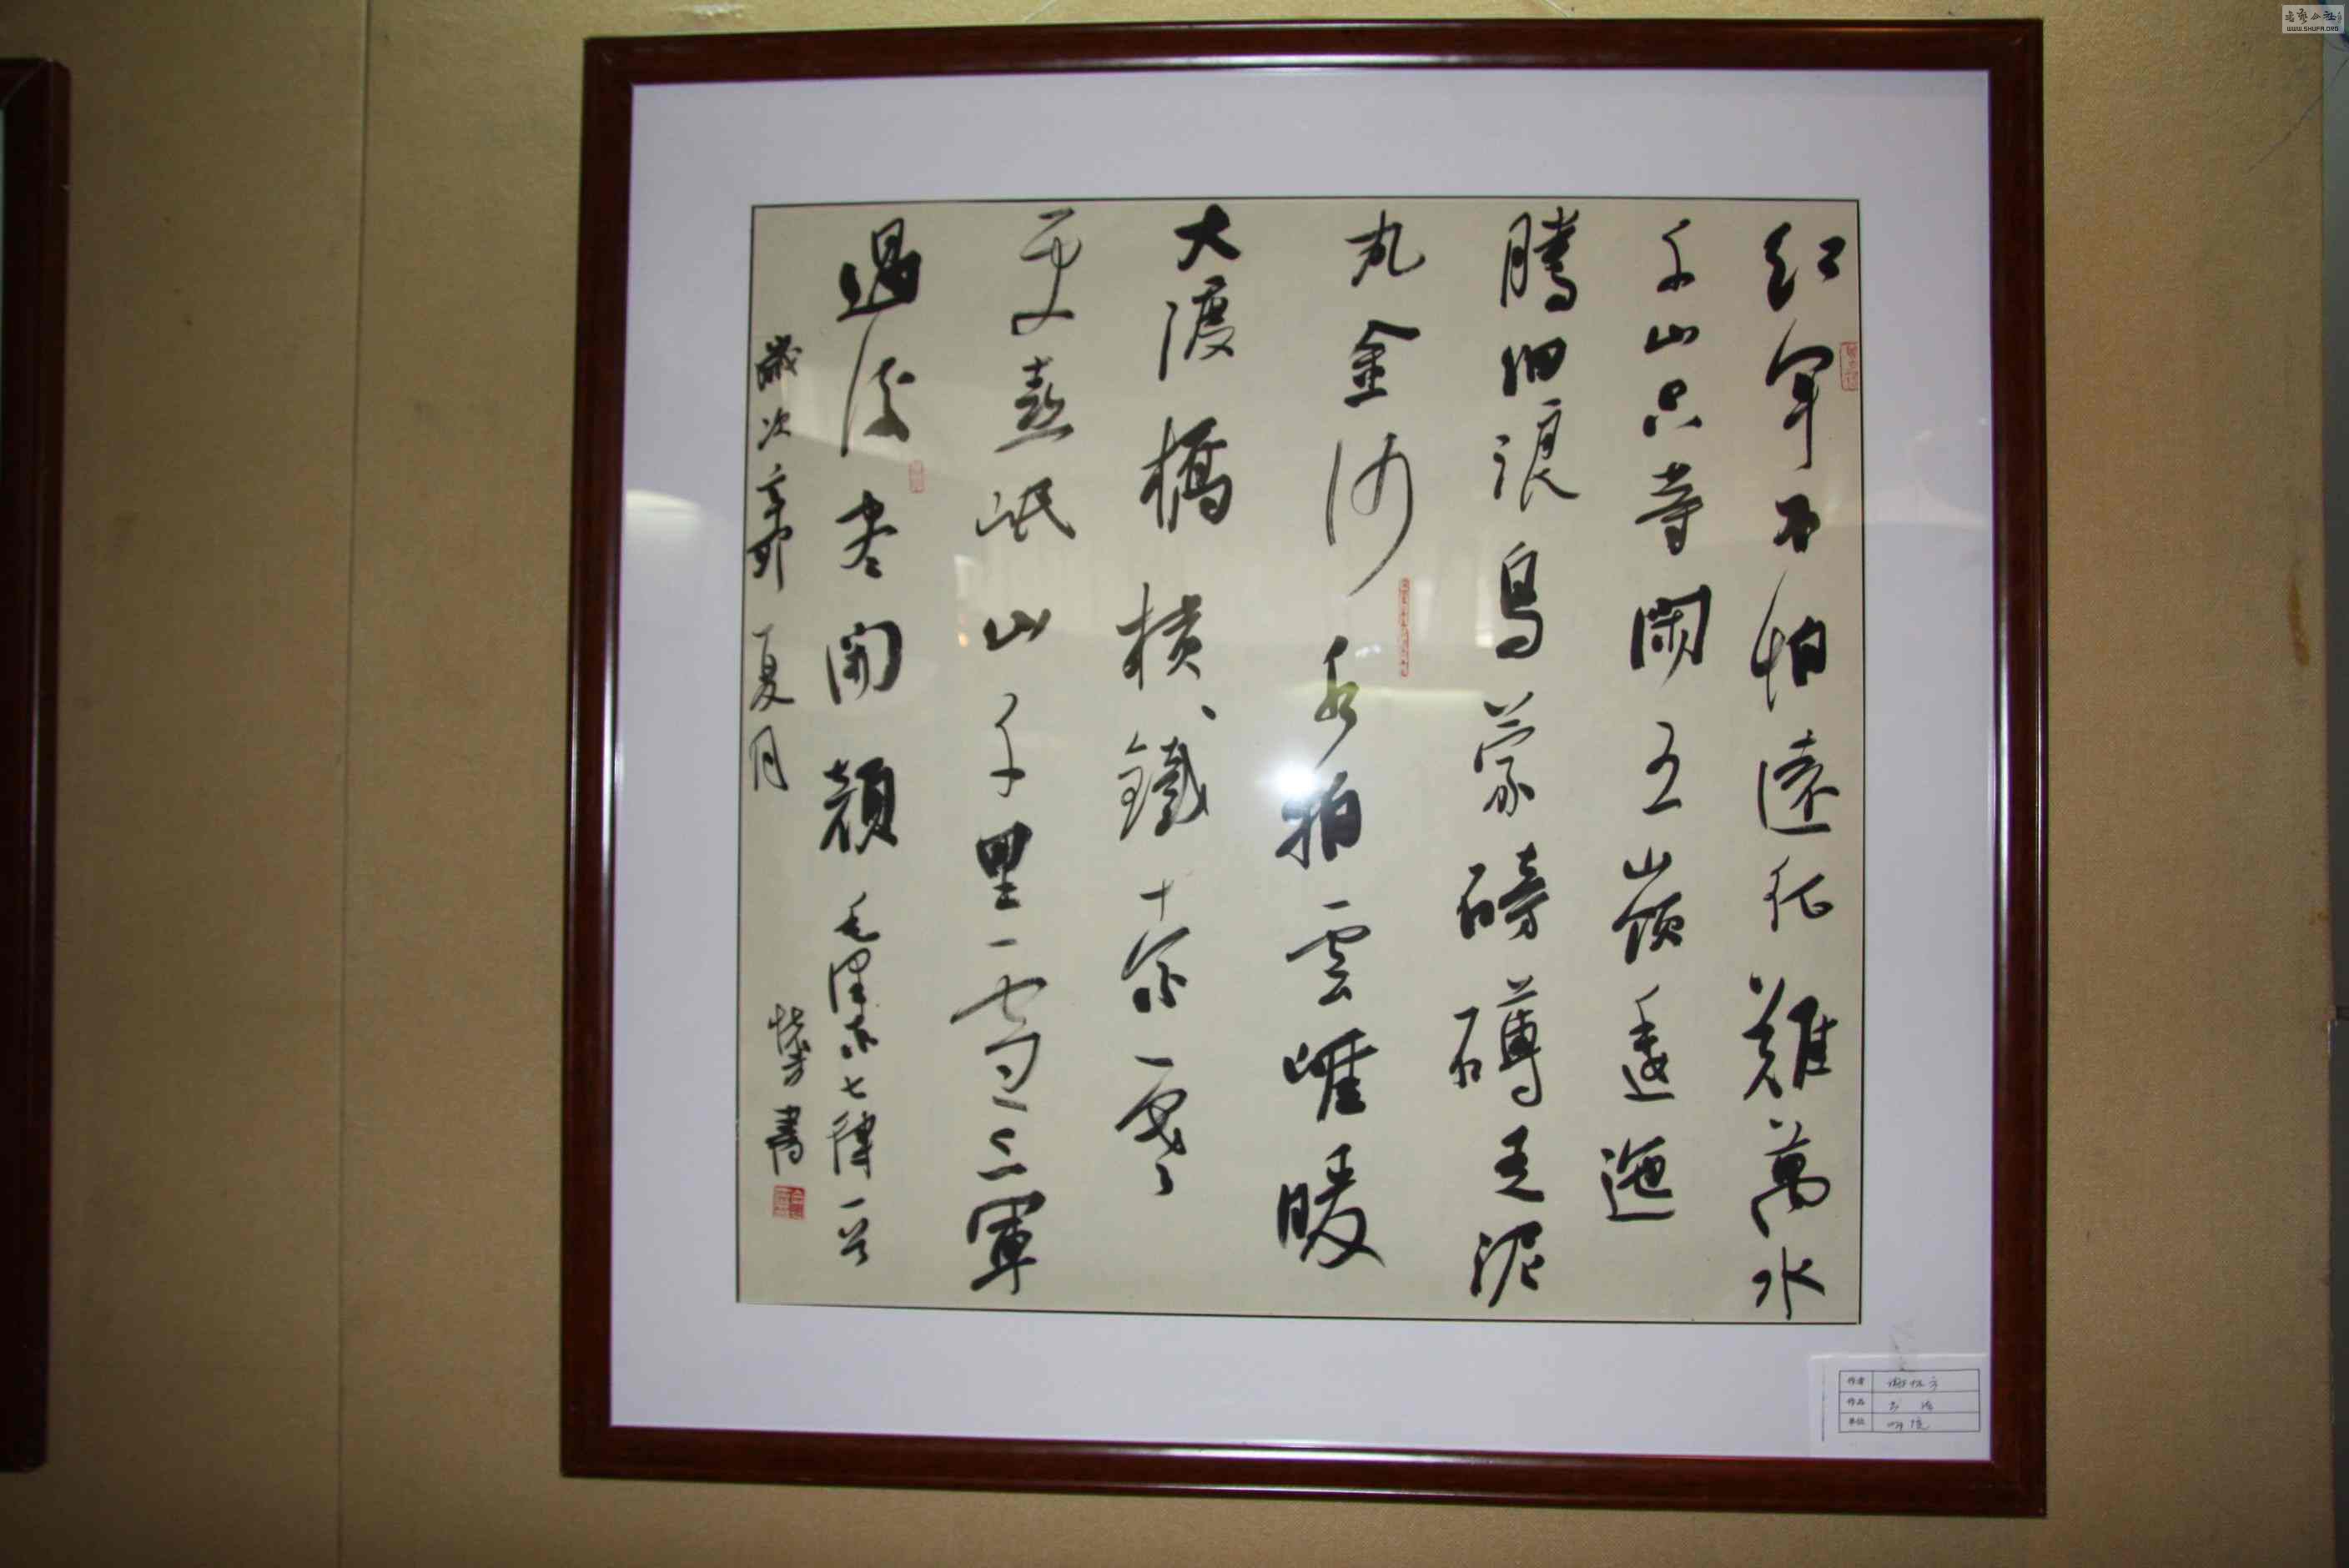 紅軍不怕遠征難萬水
千山只等閑五嶺逶迤
騰細浪烏蒙磅礴走泥
丸金沙水拍雲崖暖
大渡橋橫鐵索寒
更喜岷山千里雪三軍
過後盡開顏 毛澤東七律一首
歲次辛卯夏月 懷方書
作者 谢怀方
作品 书法
单位
书艺公社
WWW.SHUFA.ORG